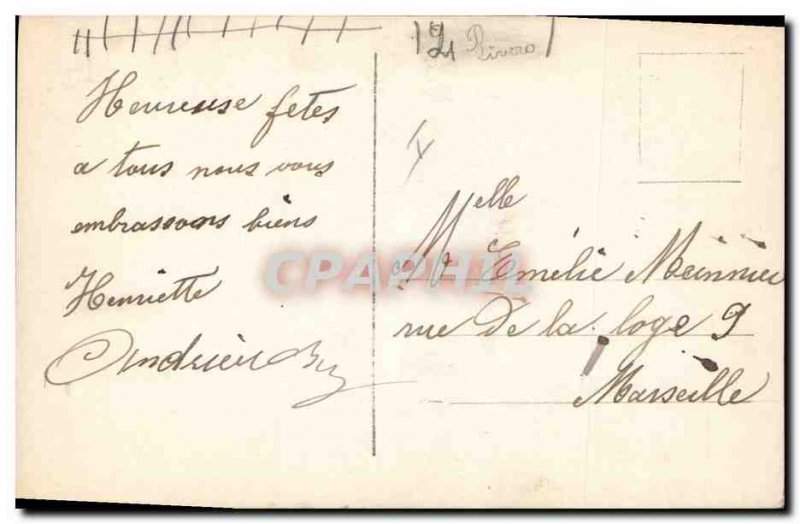 12 Rivero
Heureuse fetes
a tous nous vous
embrassons biens
Henriette
Andrieu
Melle
Emélie Meinnier
rue De la loge 9
Marseille
CPAPHIL